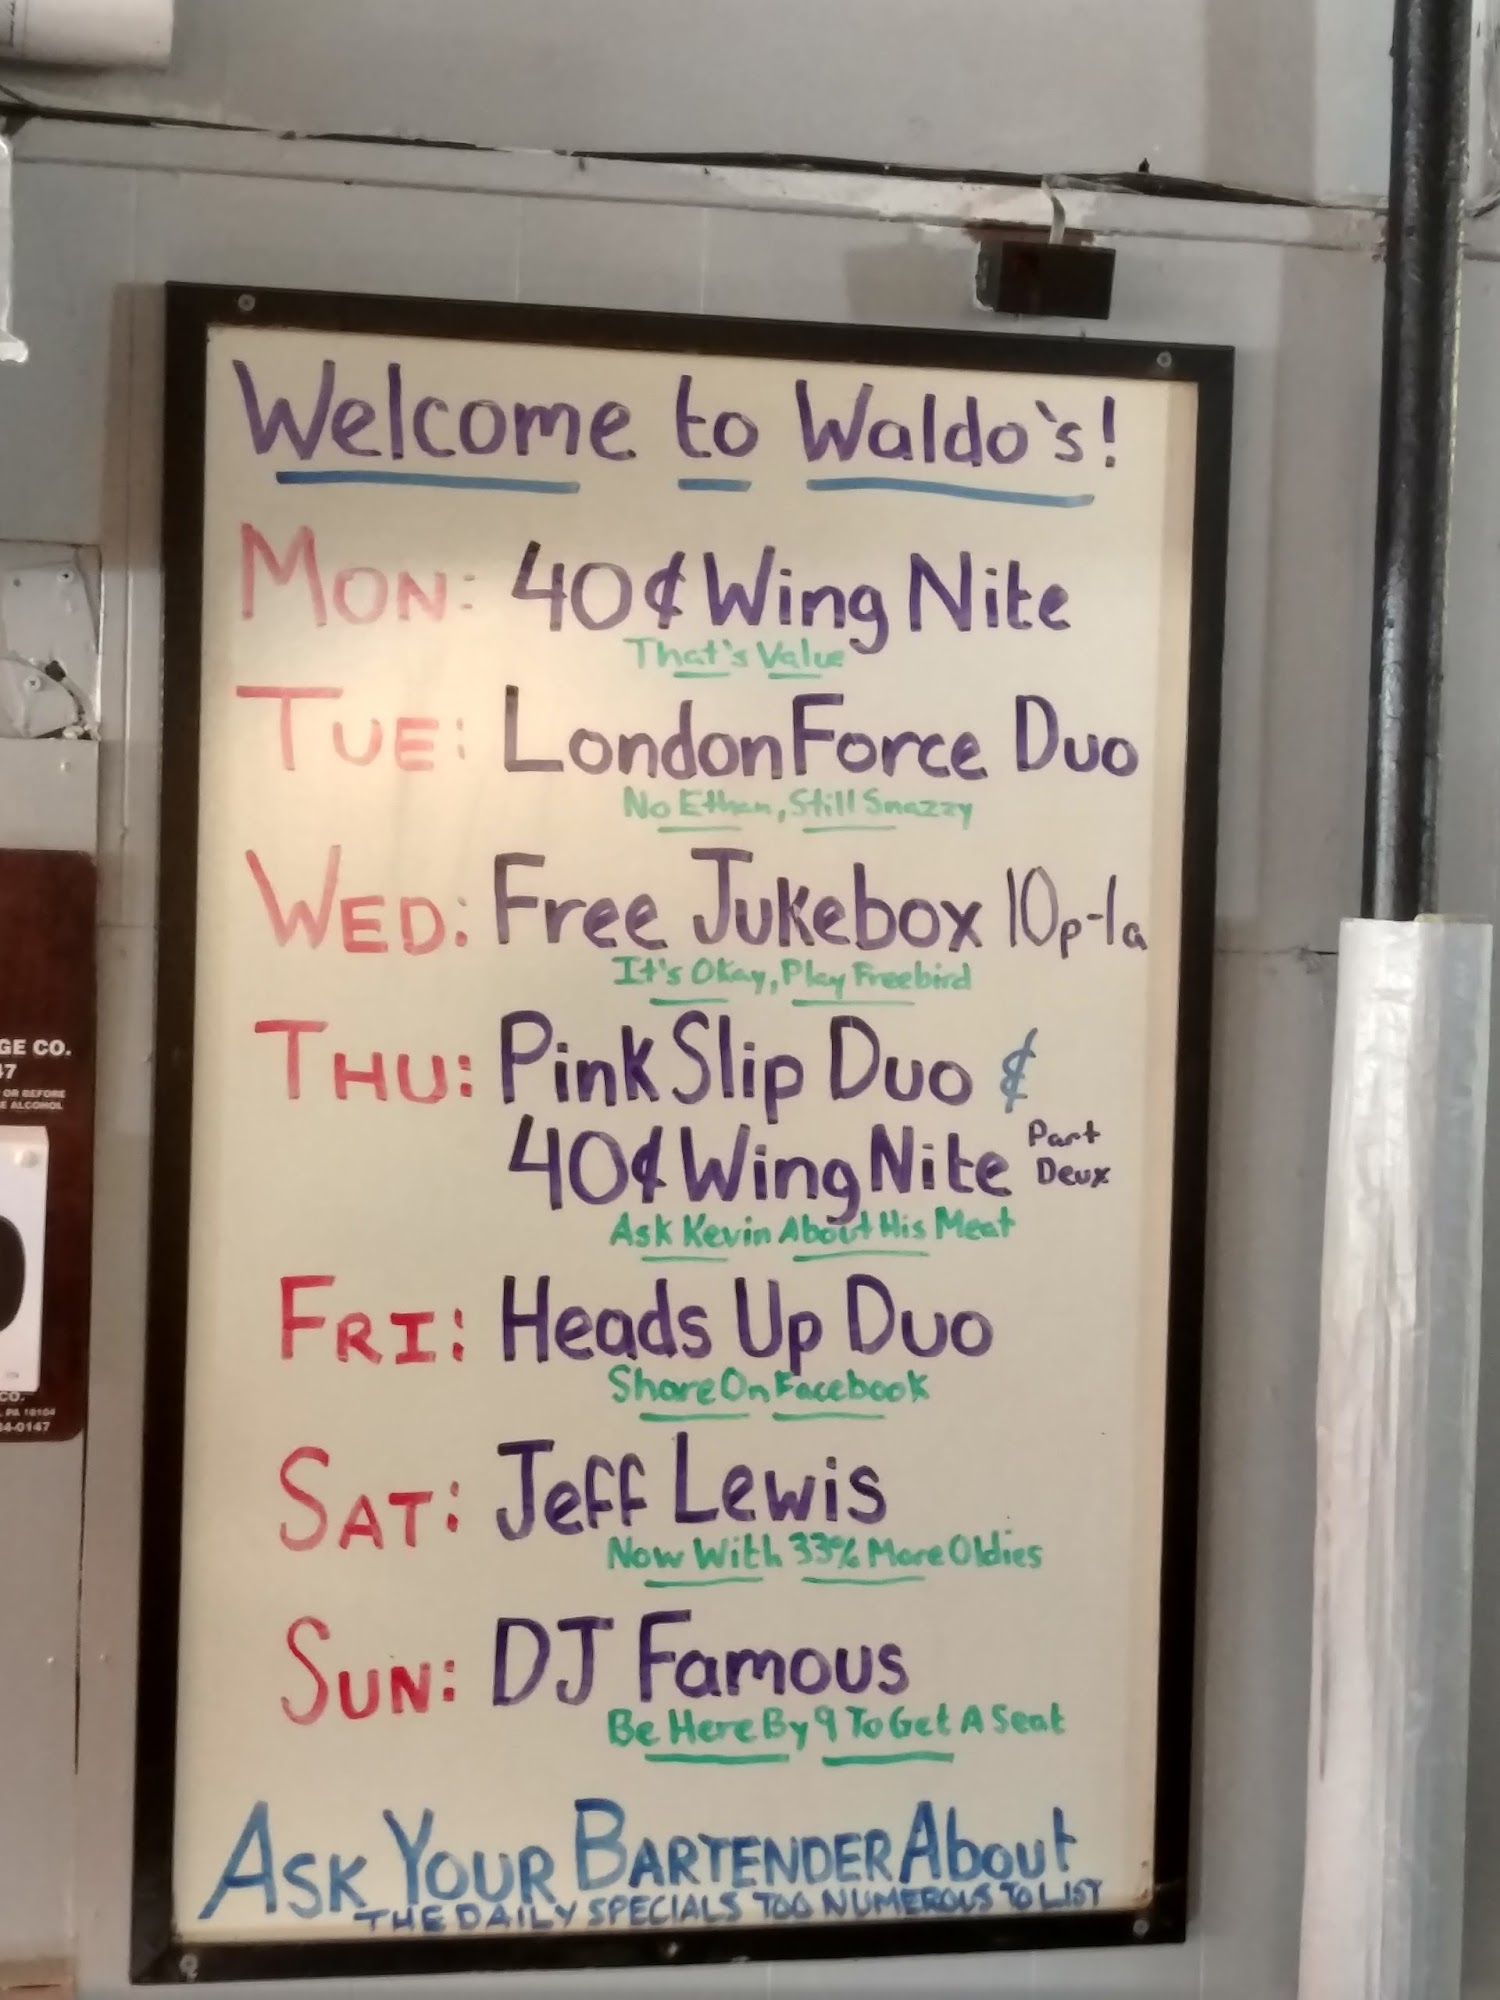 Welcome to Waldo's!
MON: 40¢ Wing Nite
That's Value
TUE: LondonForce Duo
No Ethan, Still Snazzy
WED: Free Jukebox 10p-1a
It's Okay, Play Freebird
THU: PinkSlip Duo ¢
40¢ Wing Nite Part Deux
Ask Kevin About His Meat
FRI: Heads Up Duo
Share On Facebook
SAT: Jeff Lewis
Now With 33% More Oldies
SUN: DJ Famous
Be Here By 9 To Get A Seat
ASK YOUR BARTENDER About
THE DAILY SPECIALS TOO NUMEROUS TO LIST
GE CO.
47
OR BEFORE
E ALCOHOL
CO.
, PA 18104
34-0147